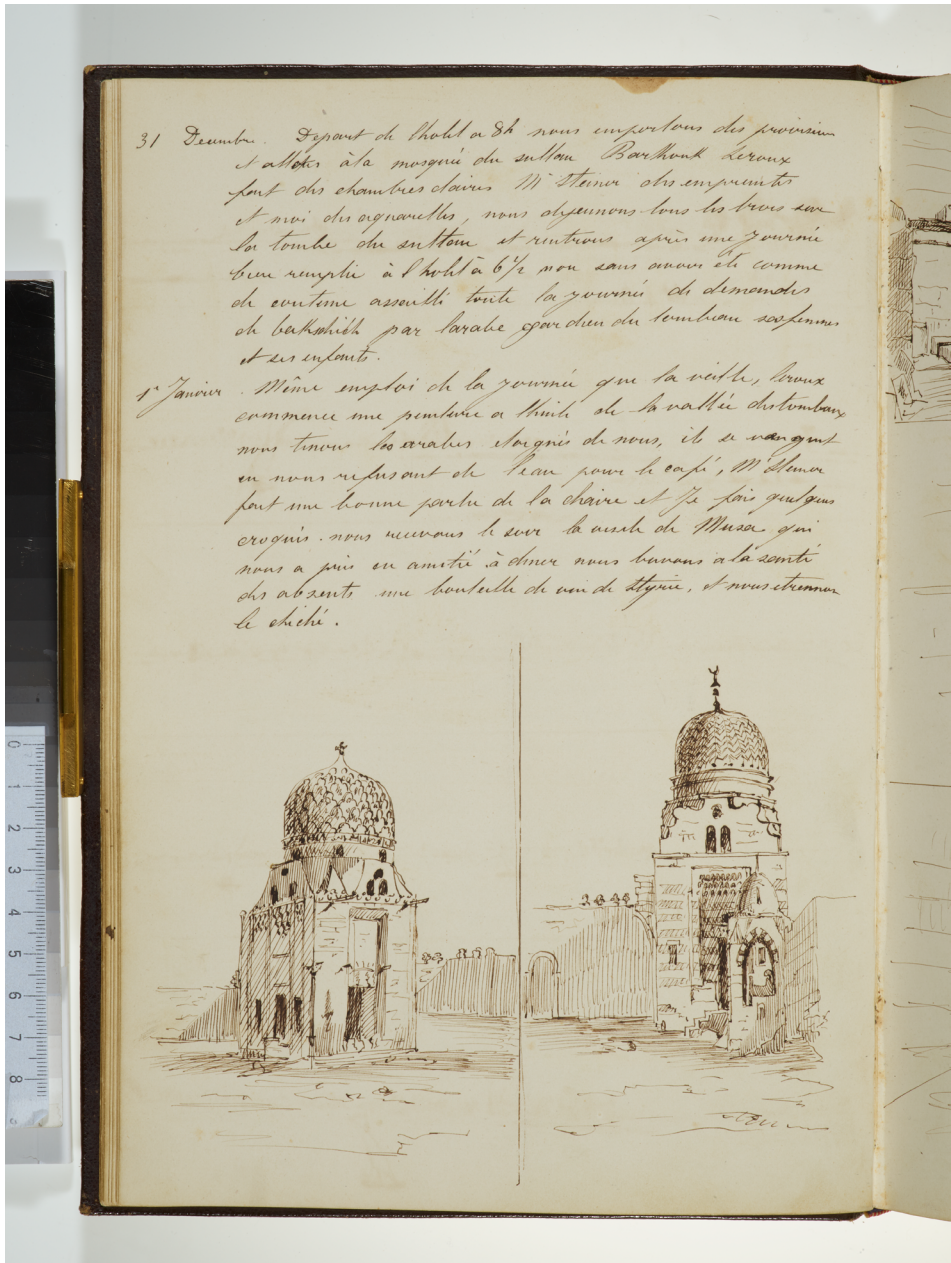 31 Decembre. Depart de lhotel a 8h nous emportons des provisions
et allons à la mosquée du sultan Barkouk Leroux
fait des chambres claires Mr Steiner des empreintes
et moi des aquarelles, nous dejeunons tous les trois sur
la tombe du sultan et rentrons après une journée
bien remplie à l hotel à 6½ non sans avoir été comme
de coutume assailli toute la journée de demandes
de bakchich par larabe gardien du tombeau ses femmes
et ses enfants.
1r Janvier. Même emploi de la journée que la veille, leroux
commence une peinture a lhuile de la vallée des tombeaux
nous tenons les arabes eloignés de nous, ils se vengent
en nous refusant de l'eau pour le café, Mr Steiner
fait une bonne partie de la chaire et Je fais quelques
croquis. nous recevons le soir la visite de Musa qui
nous a pris en amitié à diner nous buvons à la santé
des absents une bouteille de vin de Styrie, et nous etrennons
le
0
1
2
3
4
5
6
7
8